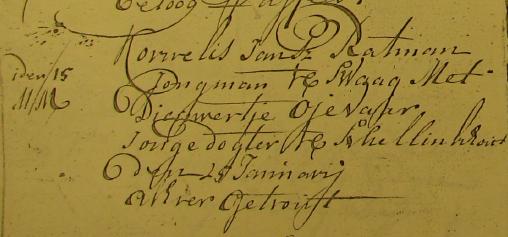 Korrnelis Jansz Ratman
iden 15
Jongman te Swaag Met
Dieuwertje Ojevaar
Jonge dogter te Schellinkhout
den 28 Jannarij
alhier getrouit